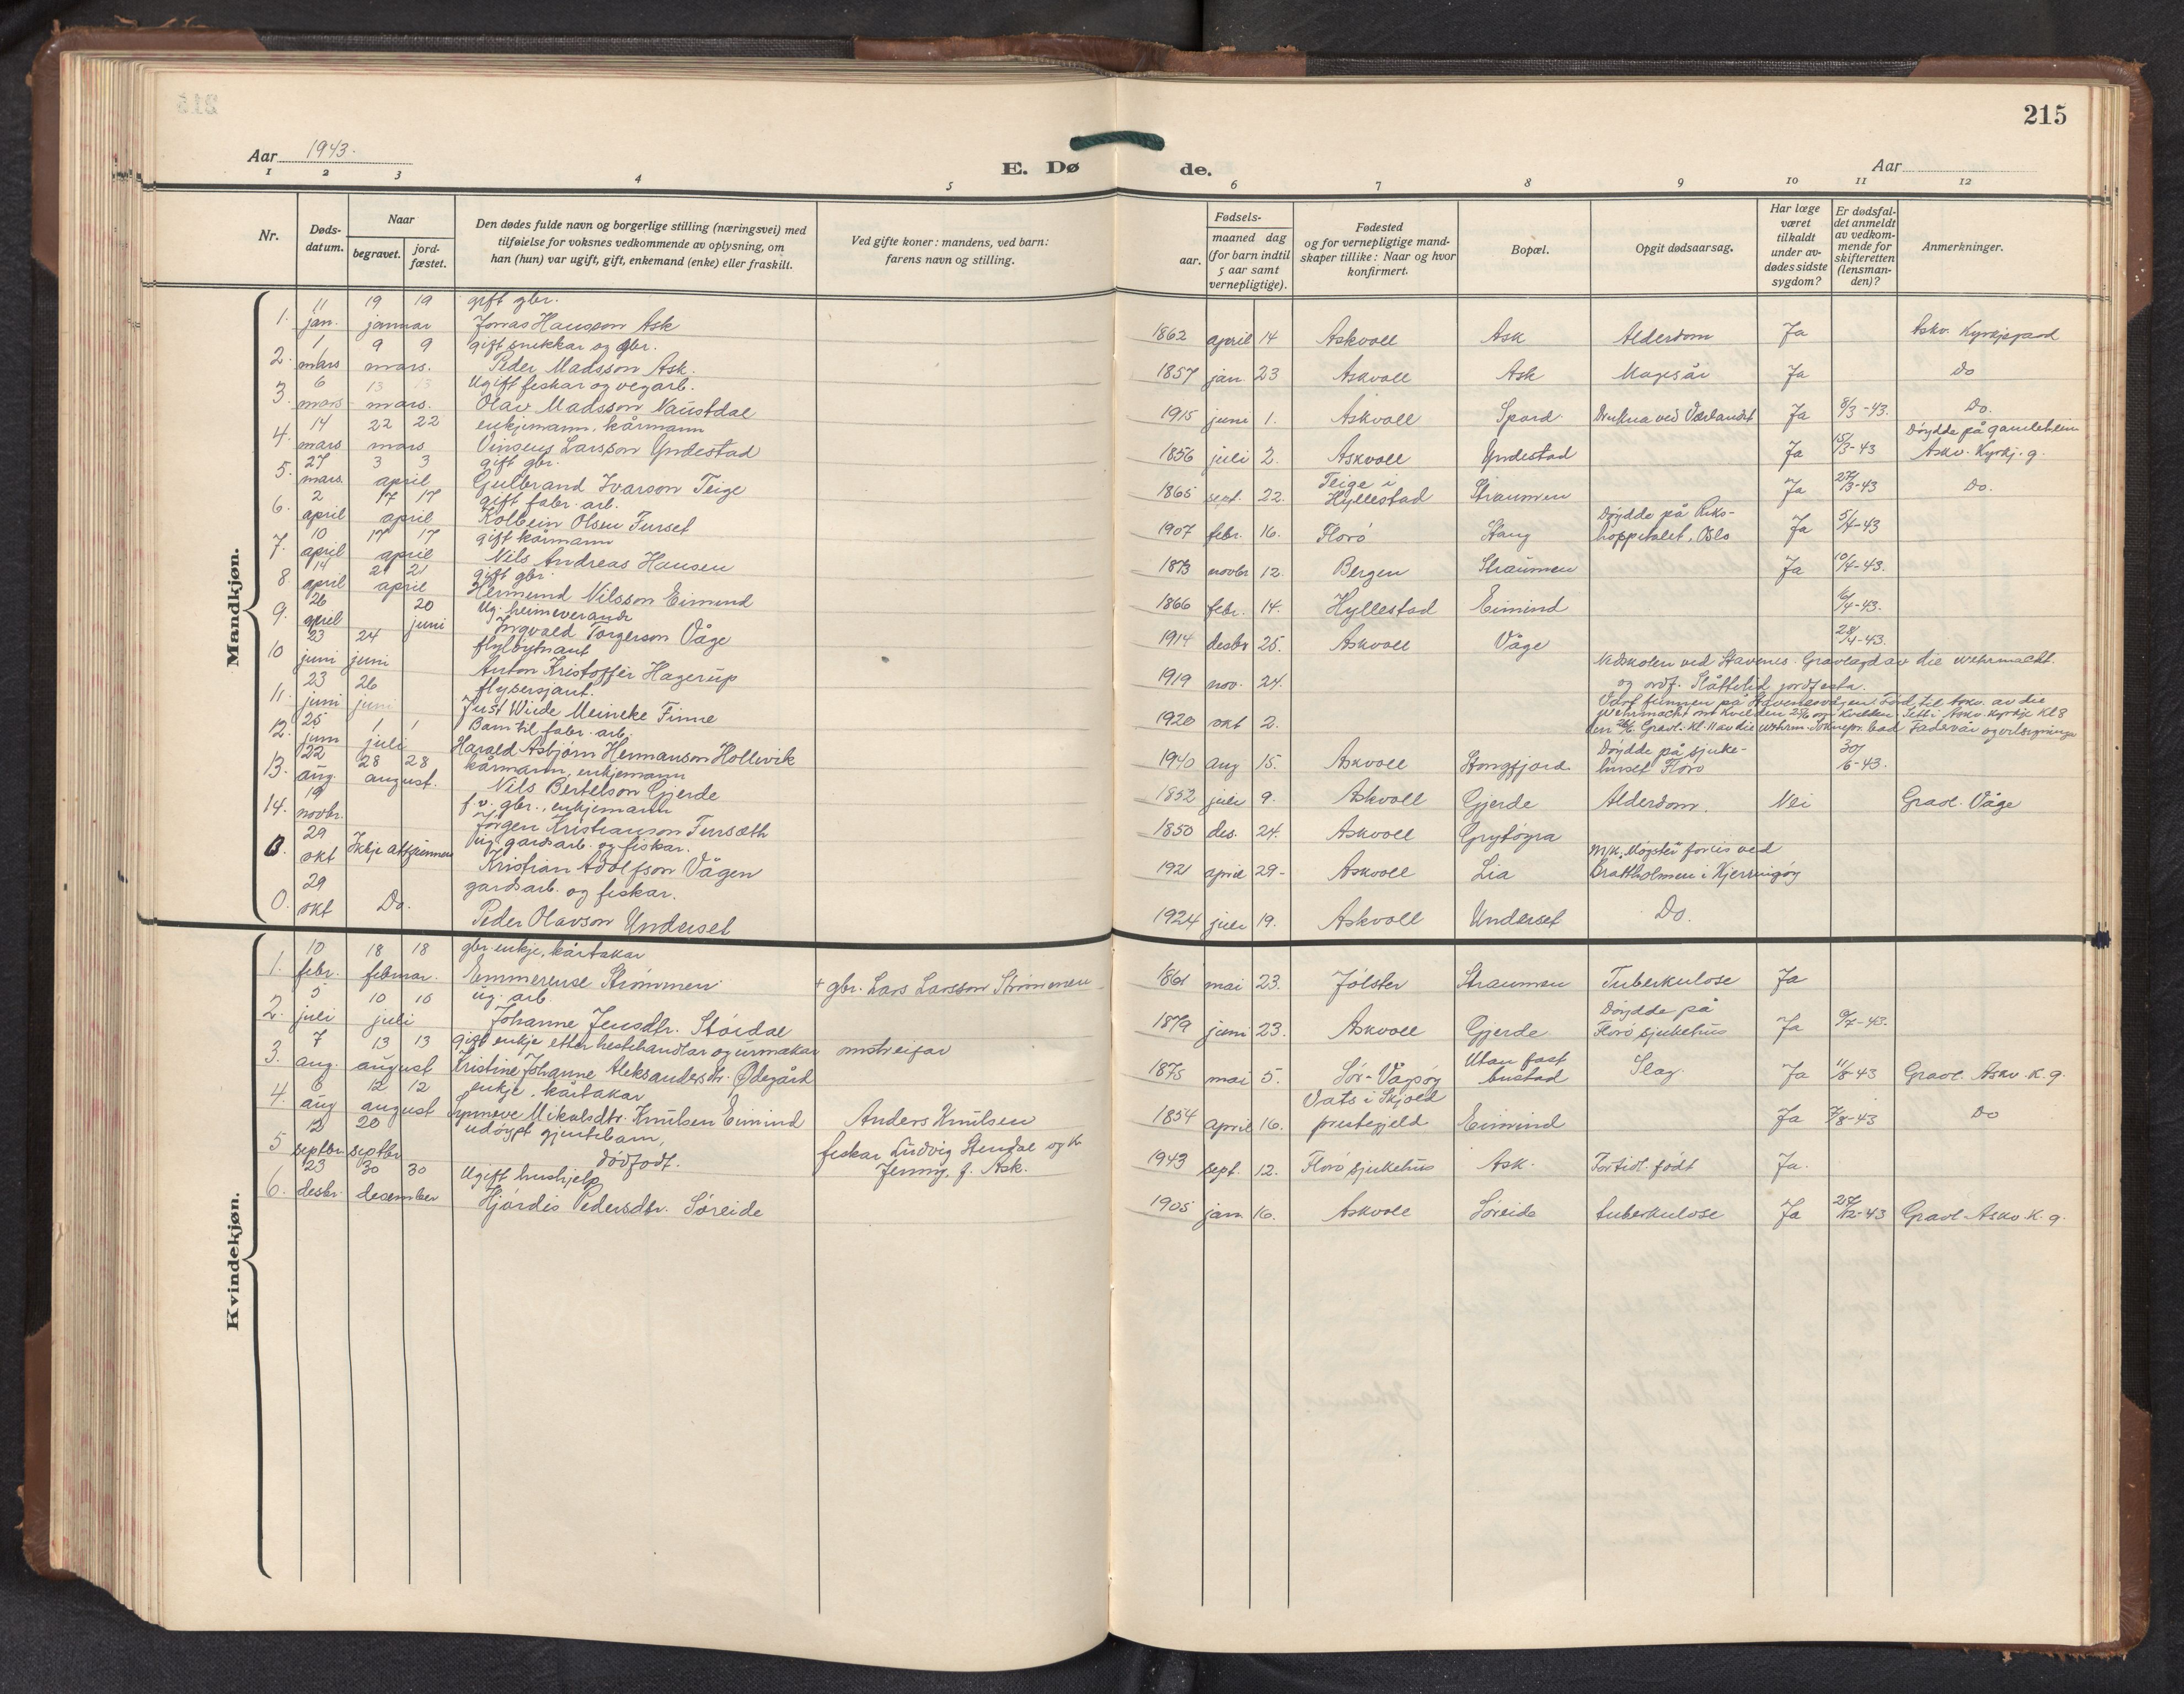 215
Aar 1943.
E. Dø
de.
Aar
1 2 3 4 5 6 7 8 9 10 11 12
Nr.
Døds-
datum.
Naar
begravet.
jord-
fæstet.
Den dødes fulde navn og borgerlige stilling (næringsvei) med
tilføielse for voksnes vedkommende av oplysning, om
han (hun) var ugift, gift, enkemand (enke) eller fraskilt.
Ved gifte koner: mandens, ved barn:
farens navn og stilling.
Fødsels-
aar.
maaned dag
(for barn indtil
5 aar samt
vernepligtige).
Fødested
og for vernepligtige mand-
skaper tillike: Naar og hvor
konfirmert.
Bopæl.
Opgit dødsaarsag.
Har læge
været
tilkaldt
under av-
dødes sidste
sygdom?
Er dødsfal-
det anmeldt
av vedkom-
mende for
skifteretten
(lensman-
den)?
Anmerkninger.
Mandkjøn.
11 19 19 gift gbr.
1. jan. januar Jonas Hansson Ask 1862 april 14 Askvoll Ask Alderdom Ja Askv. Kyrkjegard
1 9 9 gift snikkar og gbr.
2. mars mars. Peder Madsson Ask. 1857 jan 23 Askvoll Ask Magesår Ja Do
6 13 13 Ugift fiskar og vegarb.
3. mars mars. Olav Madsson Naustdal 1915 juni 1. Askvoll Spord Drukna ved Værlandet Ja 8/3-43. Do.
14 22 22 enkjemann, kårmann
4. mars mars Vingeus Larsson Yndestad 1856 juli 2. Askvoll Yndestad Ja 15/3-43 Døydde på gamleheim
Askv. Kyrkj.g.
27 3 3 gift gbr.
5. mars. april Gulbrand Ivarson Teige 1865 sept. 22. Teige i
Hyllestad Straumen Ja 27/3-43 Do.
2 17 17 gift fabr. arb.
6. april april Kolbein Olsen Furset 1907 febr. 16. Florø Stang Døydde på Riks-
hoppitalet, Oslo Ja 5/4-43
10 17 17 gift kårmann
7. april april Nils Andreas Hansen 1873 novbr 12. Bergen Straumen Ja 10/4-43.
14 21 21 gift gbr.
8 april april Hermund Nilsson Eimind 1866 febr. 14. Hyllestad Eimind 16/4-43.
26 20 Ug. heimeverande
9. april juni Ingvald Torgerson Våge 1914 desbr 25. Askvoll Våge 28/4-43.
23 24 flyløytnant
10 juni juni Anton Kristoffer Hagerup 1919 nov. 24. Nedskoten ved Stavenes. Gravlagd av die wehrmacht.
og ordf. Slåttelid jordfesta.
23 26 flysersjant.
11. juni juni Just Wiide Meineke Finne 1920 okt 2.
25 1 1 Barn til fabr. arb.
12. juni juli Harald Asbjørn Hermanson Hollevik 1940 aug 15. Askvoll Stongfjord Døydde på sjuke-
huset Florø 30/6-43.
22 28 28 kårmann, enkjemann
13. aug. august. Nils Bertelson Gjerde 1852 juli 9. Askvoll Gjerde Alderdom. Nei Gravl. Våge
19 f.v. gbr., enkjemann
14. novbr. Jørgen Kristianson Fursæth 1850 des. 24. Askvoll Grytøyra
29 Ug. gardsarb. og fiskar.
0. okt Ikkje attfunnen Kristian Adolfson Vågen 1921 april 29- Askvoll Lia M/K. Møgster forlis ved
Brattholmen i Kjerringøy
29 gardsarb. og fiskar.
0. okt Do. Peder Olavson Underset 1924 juli 19. Askvoll Underset Do.
Kvindekjøn.
10 18 18 gbr. enkje, kårtakar
1. febr. februar. Emmerense Strømmen + gbr. Lars Larsson Strømmen 1861 mai 23. Jølster Straumen Tuberkulose Ja
5 10 10 ug. arb.
2. juli juli Johanne Jensdtr. Stórdal 1879 juni 23. Askvoll Gjerde Døydde på
Florø sjukehus Ja 9/7-43.
7 13 13 gift enkje etter hestehandlar og urmakar omstreifar
3. aug. august Kristine Johanne Aleksandersdtr. Ødegård 1875 mai 5. Sør-Vågsøy Utan fast
bustad Slag. Ja 11/8-43 Gravl. Askv. K.g.
6 12 12 enkje, kårtakar
4. aug august Synneve Mikalsdtr. Knutsen Eimind Anders Knutsen 1854 april 16. Vats i Skjold
prestegjeld Eimind Ja 7/8-43 Do
12 20 udøypt gjentebarn,
5 septbr septbr dødfødt. fiskar Ludvig Stendal og k
Jenny, f. Ask. 1943 sept. 12. Florø sjukehus Ask. Fortidl. født Ja.
23 30 30 Ugift hushjelp
6. desbr. december Hjørdis Pedersdtr. Søreide 1905 jan 16. Askvoll Søreide tuberkulose Ja 28/12-43 Gravl. Askv K.g.